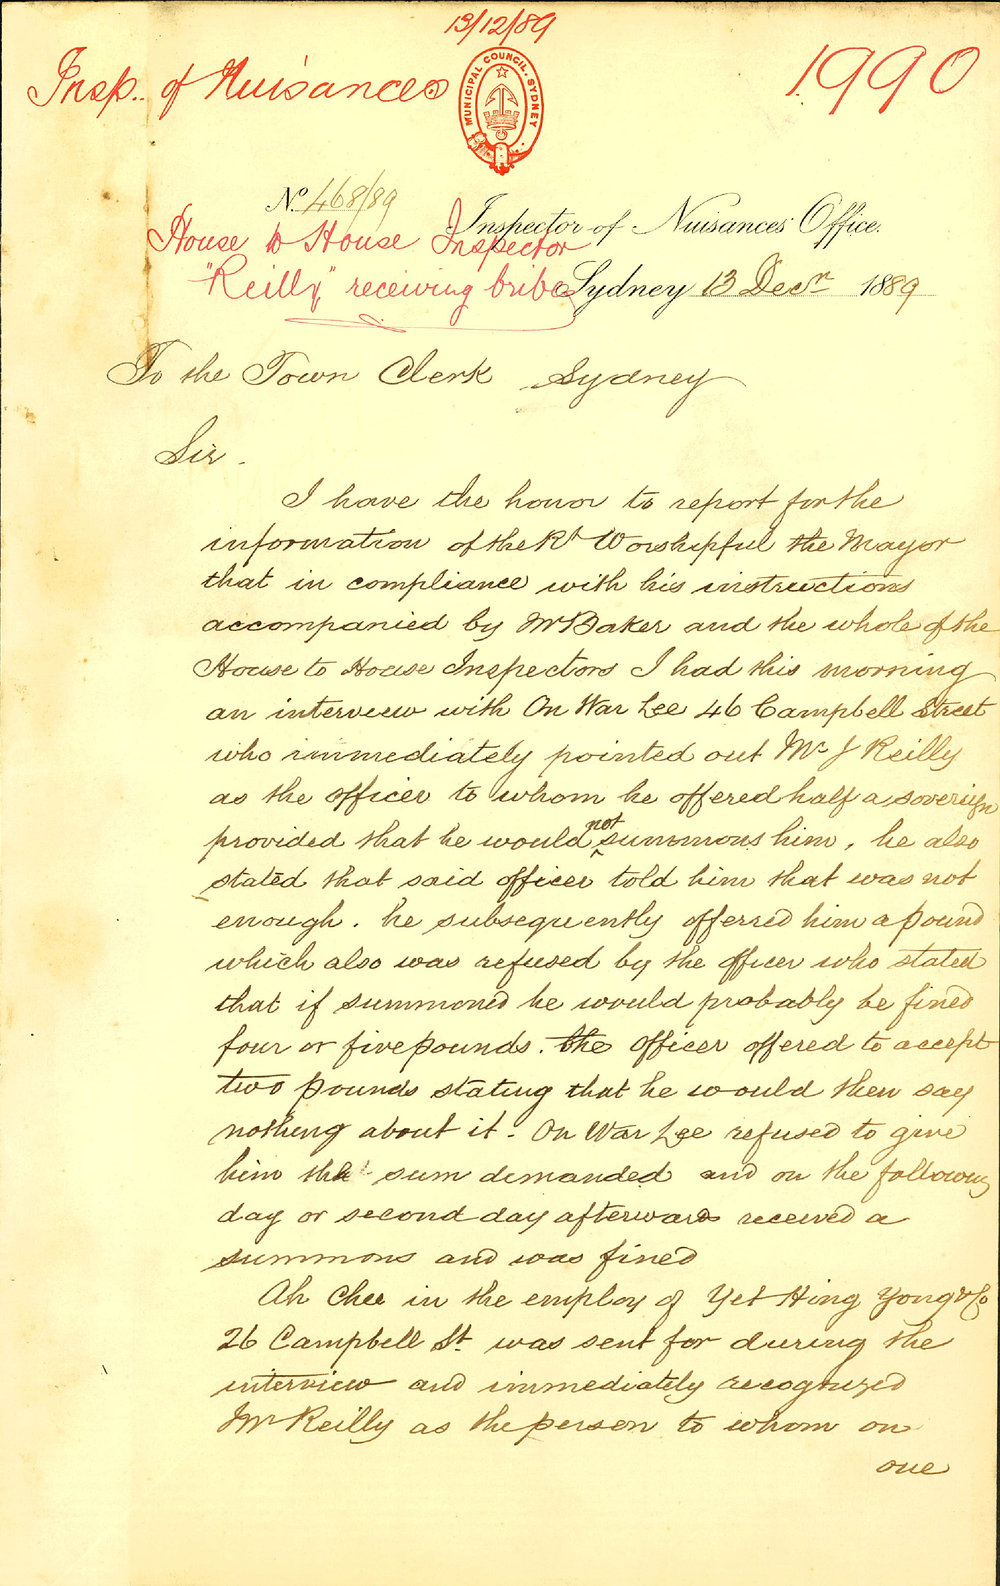 13/12/89
Insp. of Nuisances
MUNICIPAL COUNCIL. SYDNEY
1990
No. 468/89
Inspector of Nuisances' Office.
House to House Inspector
"Reilly" receiving bribes
Sydney 13 Decr 1889
To the Town Clerk Sydney
Sir.
I have the honor to report for the
information of the Rt Worshipful the Mayor
that in compliance with his instructions
accompanied by Mr Baker and the whole of the
House to House Inspectors I had this morning
an interview with On War Lee 46 Campbell Street
who immediately pointed out Mr J Reilly
as the officer to whom he offered half a soverign
provided that he would not summons him, he also
stated that said officer told him that was not
enough. he subsequently offerred him a pound
which also was refused by the officer who stated
that if summoned he would probably be fined
four or five pounds. the officer offered to accept
two pounds stating that he would then say
nothing about it. On War Lee refused to give
him the sum demanded and on the following
day or second day afterwards received a
summons and was fined
Ah Chee in the employ of Yet Hing Yong & Co
26 Campbell St. was sent for during the
interview and immediately recognized
Mr Reilly as the person to whom on
one